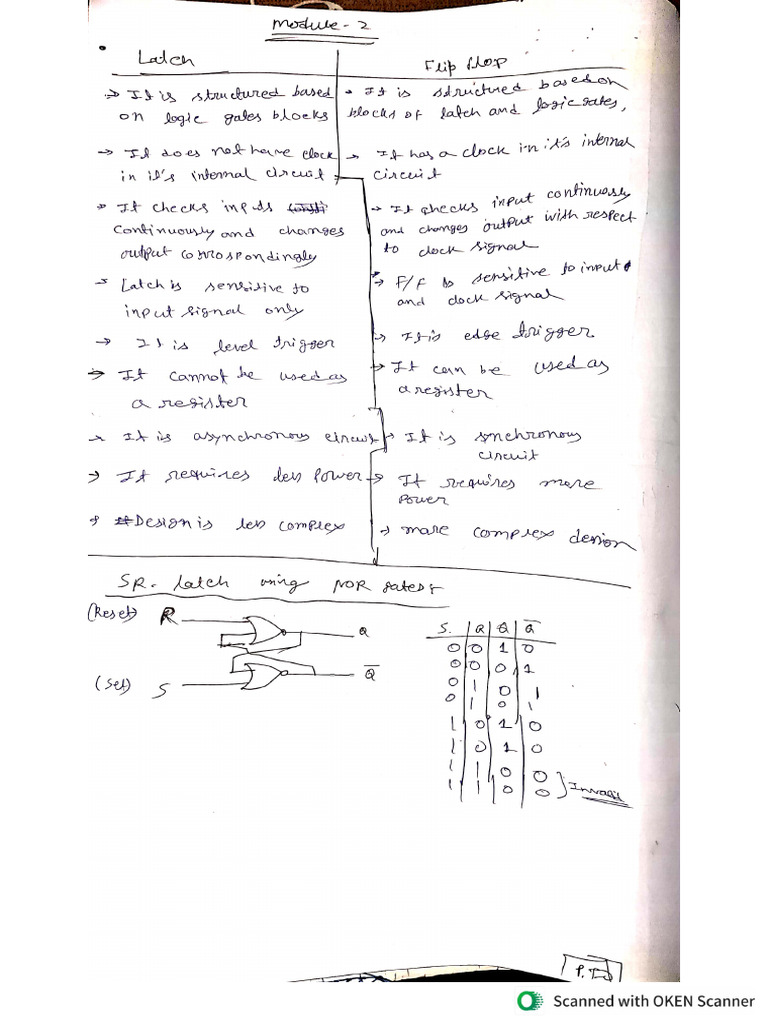 Module - 2
Latch
Flip flop
→ It is structured based
on logic gates blocks
→ It does not have clock
in it's internal circuit
→ It checks inputs
continuously and changes
output corrospondingly
→ Latch is sensitive to
input signal only
→ It is level trigger
→ It cannot be used as
a register
→ It is asynchronous circuit
→ It requires less Power
→ Design is less complex
• It is structured based on
blocks of latch and logic gates,
→ It has a clock in it's internal
circuit
→ It checks input continuously
and changes output with respect
to clock signal
→ F/F is sensitive to input
and clock signal
→ It is edge trigger
→ It can be used as
a register
→ It is synchronous
circuit
→ It requires more
Power
→ more complex design
SR- latch using NOR gates:
(Reset) R
Q
(Set) S
Q̅
S. R Q Q̅
0 0 1 0
0 0 0 1
0 1 0 1
0 1 0 1
1 0 1 0
1 0 1 0
1 1 0 0
1 1 0 0
Invalid
P.T.O
Scanned with OKEN Scanner